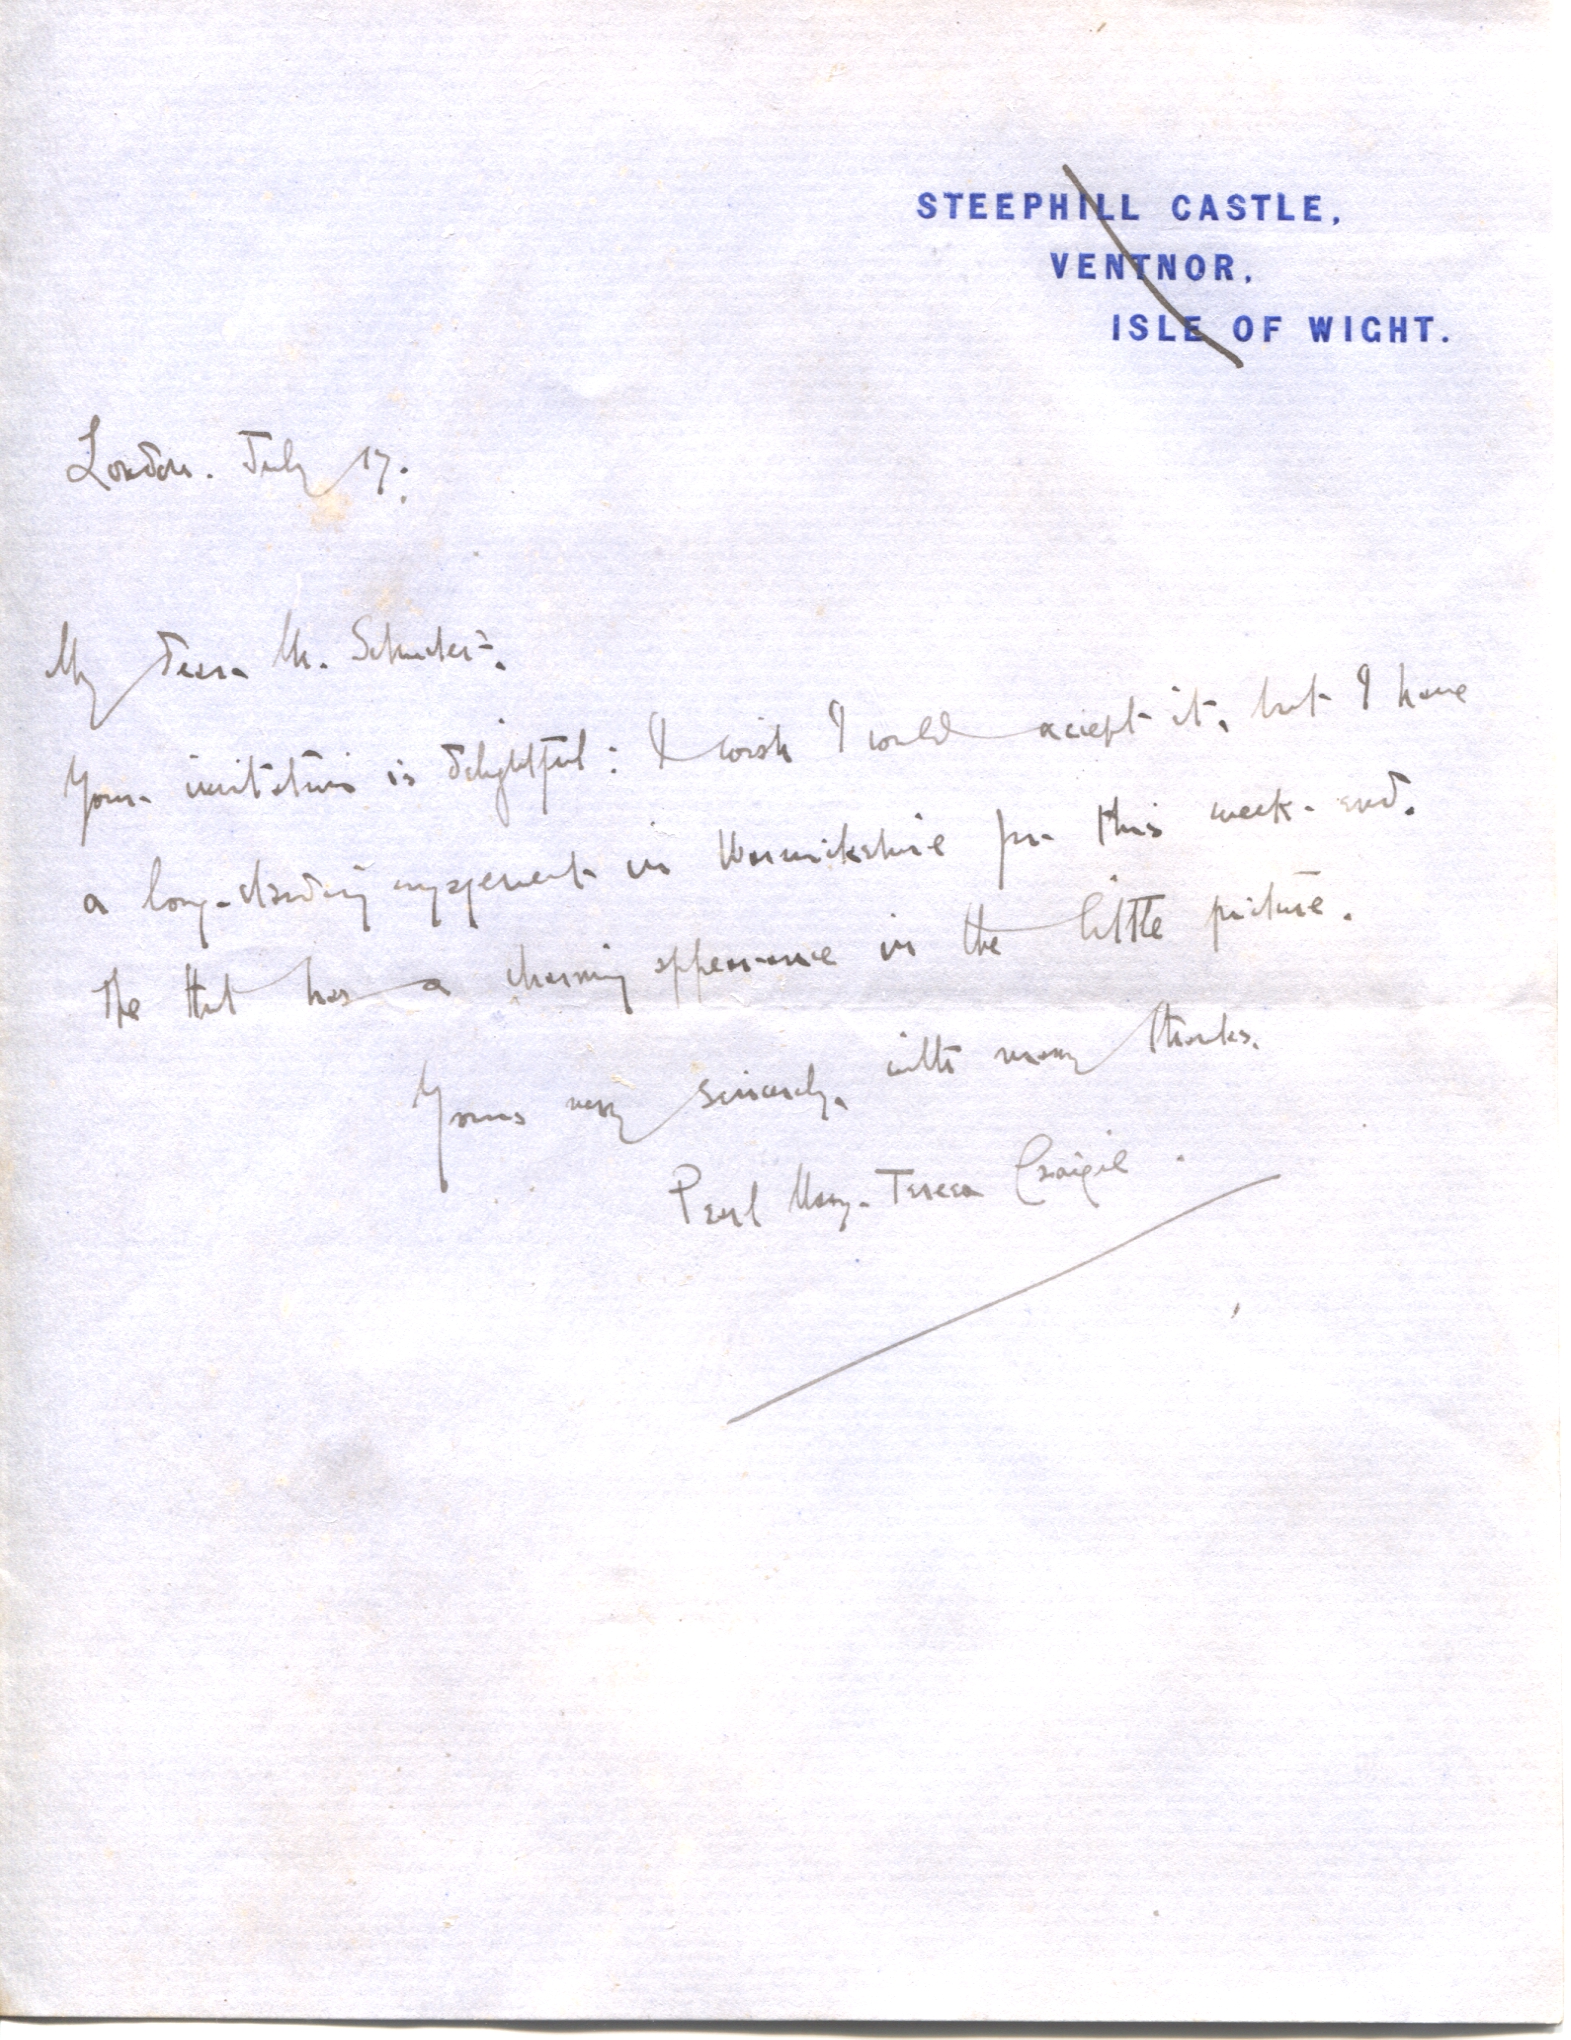 STEEPHILL CASTLE,
VENTNOR,
ISLE OF WIGHT.
London. July 17:
My dear Mr.
Your invitation is delightful: I wish I could accept it, but I have
a long-standing engagement in Warwickshire for this week-end.
The Hut has a charming appearance in the little picture.
Yours very sincerely, with many thanks.
Pearl Mary-Teresa Craigie.